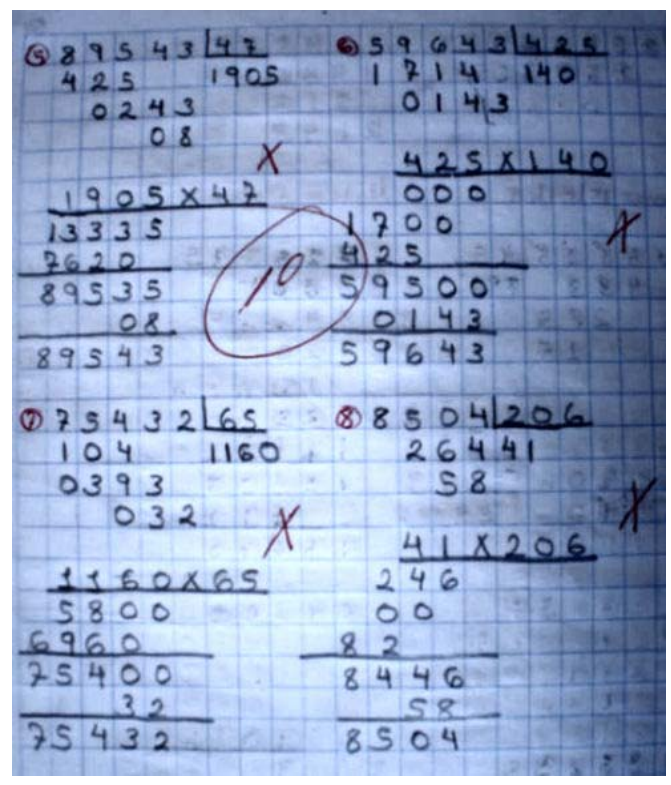 ⑤ 8 9 5 4 3 47
4 2 5 1905
0 2 4 3
0 8
X
1905 X 47
13335
7620
89535
08
89543
⑥ 5 9 6 4 3 425
1 7 1 4 140
0 1 4 3
425 X 140
000
1700
425
59500
0143
59643
X
10
⑦ 7 5 4 3 2 65
1 0 4 1160
0 3 9 3
0 3 2
X
1160 X 65
5800
6960
75400
32
75432
⑧ 8 5 0 4 206
2 6 4 41
5 8
X
41 X 206
246
00
82
8446
58
8504